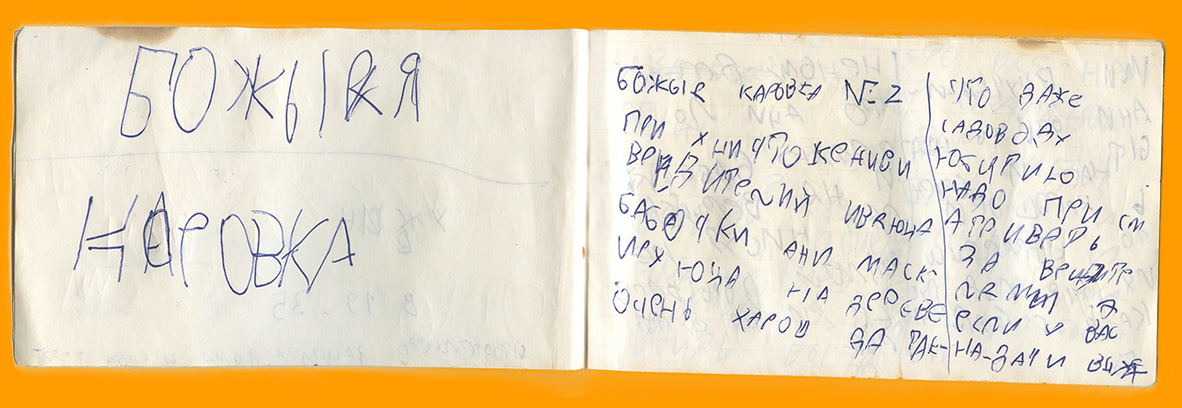 БОЖЫЯ
КАРОВКА
БОЖЫЯ КАРОВКА № 2
ПРИ УНИЧТОЖЕНИЕИ
ВРЕДИТЕЛИЙ ИВЯЮЦА
БАБОЧКИ АНИ МАСК-
ИРУЮЦА НА ДЕРЕВЕ
ОЧЕНЬ ХАРОШ ДА ТАК-
ЧТО ДАЖЕ
САДОВДАХ
НАДО ПРИСМ
АТРИВАТЬ
ЗА ВРЕДИТЕ
ЛЯМИ А
ЕСЛИ У ВАС
НА-ДАЧИ